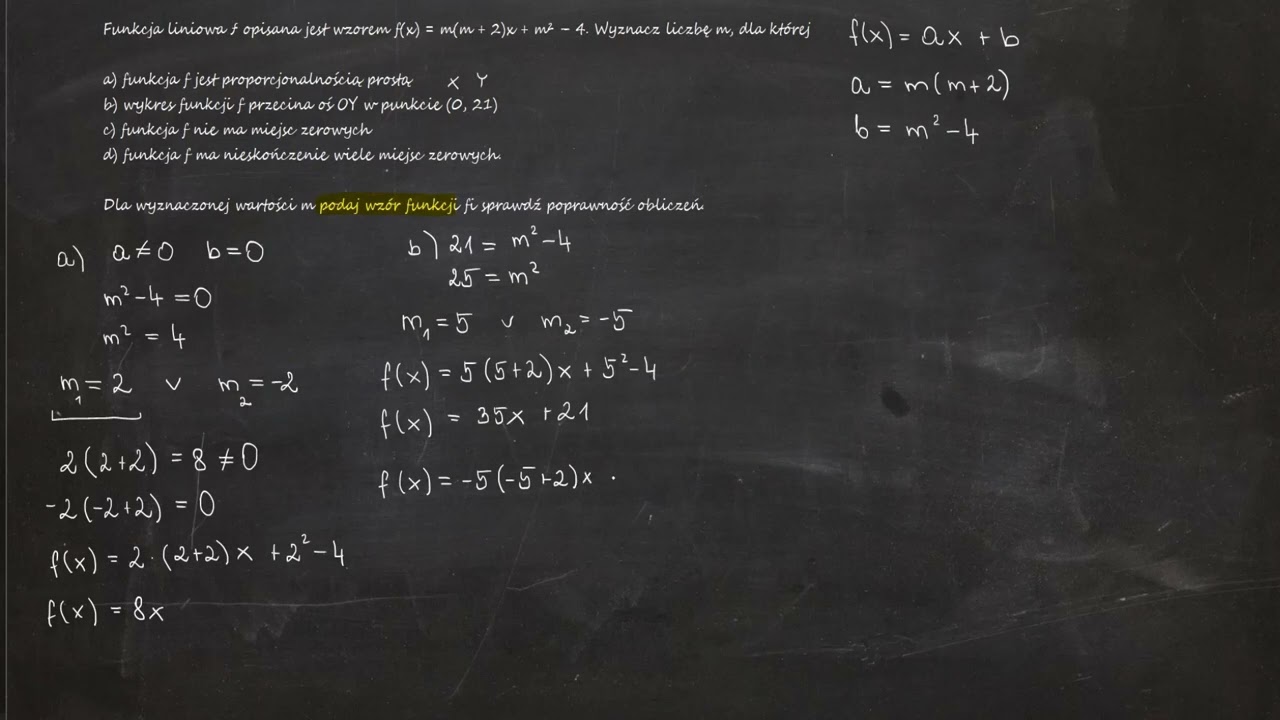 Funkcja liniowa f opisana jest wzorem f(x) = m(m + 2)x + m² − 4. Wyznacz liczbę m, dla której
a) funkcja f jest proporcjonalnością prostą X Y
b) wykres funkcji f przecina oś OY w punkcie (0, 21)
c) funkcja f nie ma miejsc zerowych
d) funkcja f ma nieskończenie wiele miejsc zerowych.
Dla wyznaczonej wartości m podaj wzór funkcji fi sprawdź poprawność obliczeń.
f(x) = ax + b
a = m(m+2)
b = m² − 4
a) a ≠ 0 b = 0
m² − 4 = 0
m² = 4
m₁ = 2 v m₂ = −2
2(2+2) = 8 ≠ 0
−2(−2+2) = 0
f(x) = 2·(2+2)x + 2² − 4
f(x) = 8x
b) 21 = m² − 4
25 = m²
m₁ = 5 v m₂ = −5
f(x) = 5(5+2)x + 5² − 4
f(x) = 35x + 21
f(x) = −5(−5+2)x ·